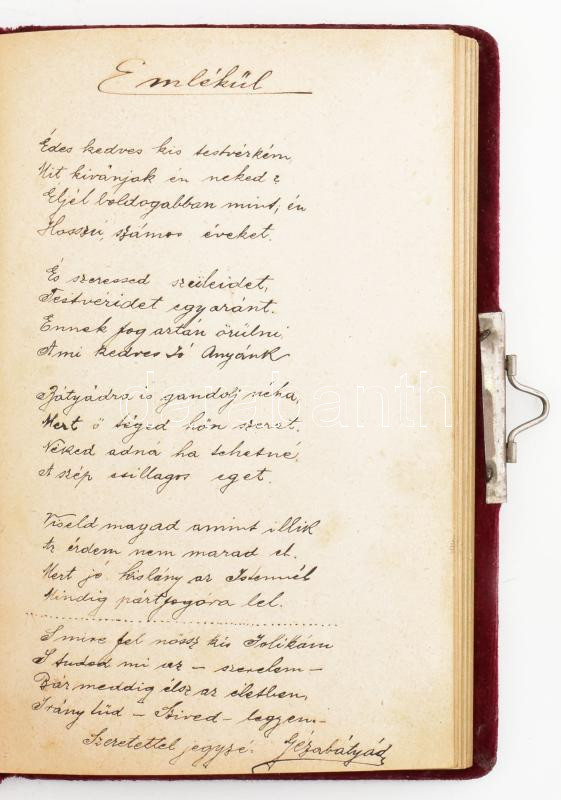 Emlékül
Édes kedves kis testvérkém,
Mit kivánjak én neked?
Éljél boldogabban mint, én
Hosszú, számos éveket.
És szeressed szüleidet,
Testvéridet egyaránt.
Ennek fog aztán örülni
A mi kedves Jó Anyánk
Bátyádra is gondolj néha,
Mert ő téged hőn szeret.
Néked adná ha tehetné
A szép csillagos eget.
Viseld magad amint illik
Az érdem nem marad el.
Mert jó kislány az Istennél
Mindig pártfogóra lel.
S mire fel nőssz kis Jolikám
S tudod mi az – szerelem –
Bár meddig élsz az életben,
Irány tűd – Szived – legyen.
Szeretettel jegyzé: Gézabátyád
darabanth